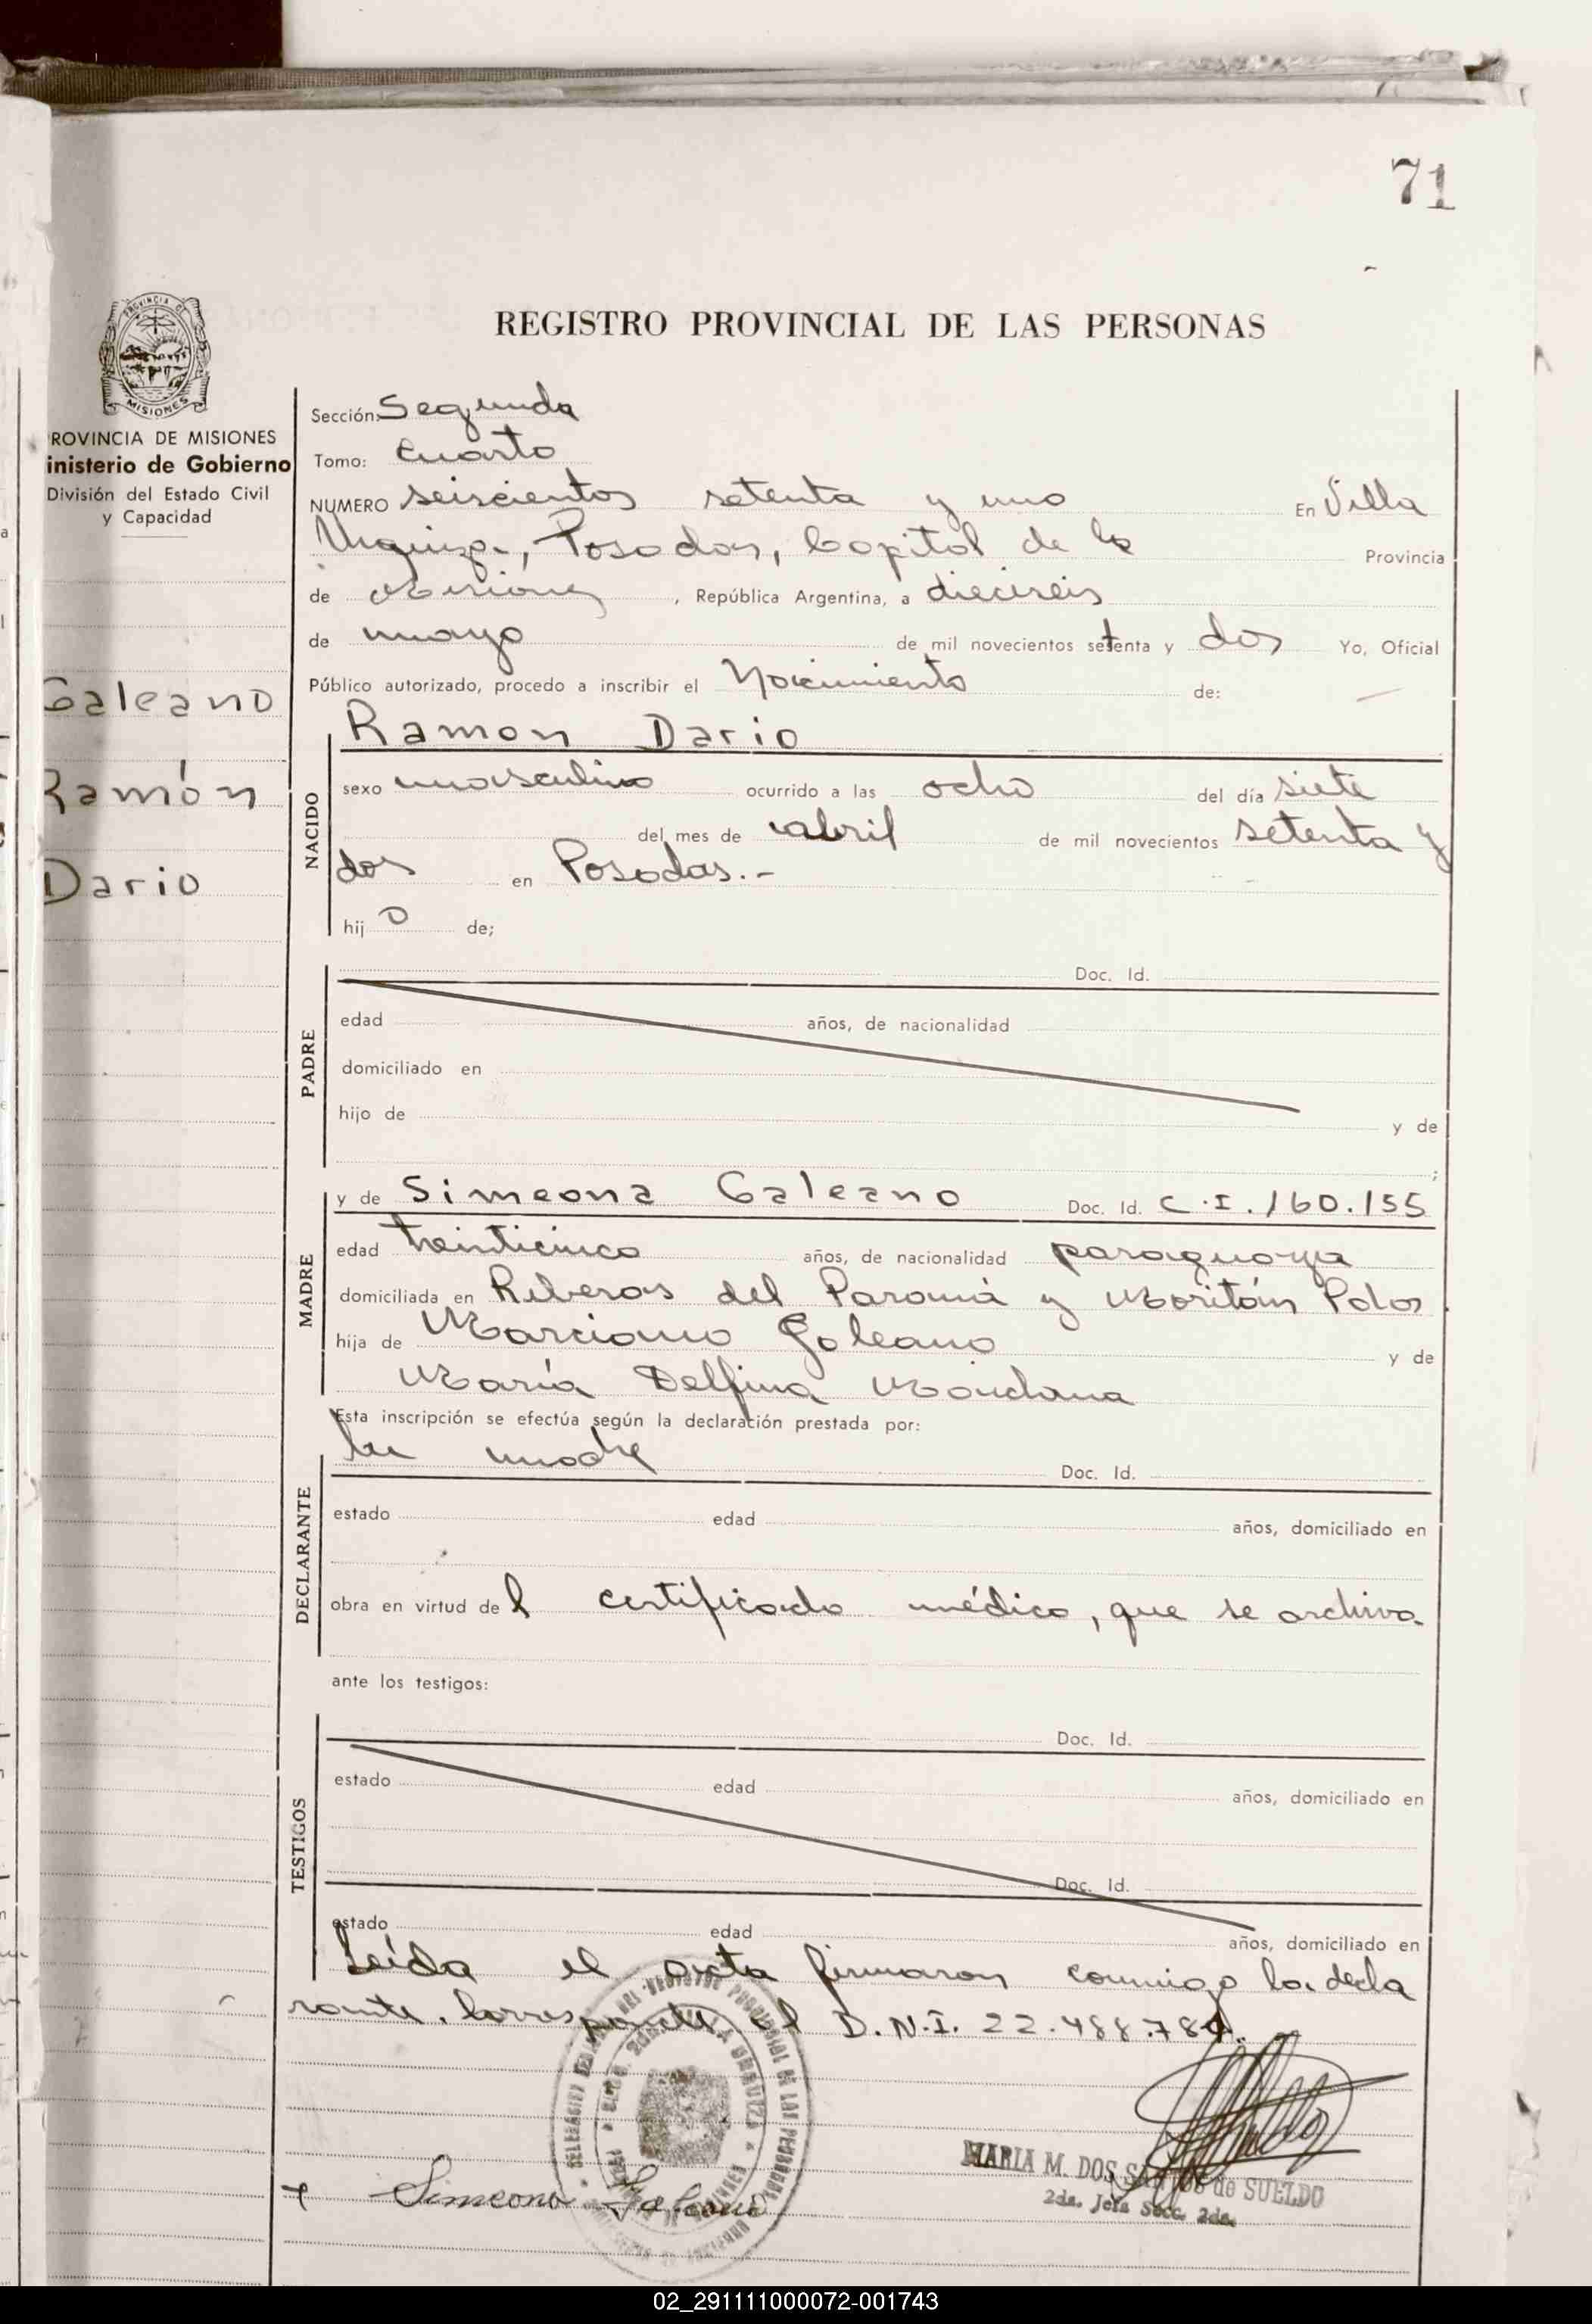 71
REGISTRO PROVINCIAL DE LAS PERSONAS
PROVINCIA DE
MISIONES
ROVINCIA DE MISIONES
inisterio de Gobierno
División del Estado Civil
y Capacidad
Galeano
Ramón
Dario
Sección: Segunda
Tomo: Cuarto
NUMERO seiscientos setenta y uno En Villa
Urquiza, Posadas, Capital de la Provincia
de Misiones, República Argentina, a dieciseis
de mayo de mil novecientos setenta y dos Yo, Oficial
Público autorizado, procedo a inscribir el Nacimiento de:
Ramon Dario
NACIDO
sexo masculino ocurrido a las ocho del día siete
del mes de abril de mil novecientos setenta y
dos en Posadas.-
hij o de;
PADRE
Doc. Id.
edad años, de nacionalidad
domiciliado en
hijo de y de
;
MADRE
y de Simeona Galeano Doc. Id. C.I. 160.155
edad veinticinco años, de nacionalidad paraguaya
domiciliada en Riberas del Paraná y
hija de Marciano Galeano y de
María Delfina
Esta inscripción se efectúa según la declaración prestada por:
DECLARANTE
su madre Doc. Id.
estado edad años, domiciliado en
obra en virtud del certificado médico, que se archiva
ante los testigos:
TESTIGOS
Doc. Id.
estado edad años, domiciliado en
Doc. Id.
estado edad años, domiciliado en
Leída el acta firmaron conmigo la decla
rante. Corresponde al D.N.I.
MARIA M. DOS SANTOS de SUELDO
2da. Jefa Secc. 2da.
Simeona Galeano
02_291111000072-001743